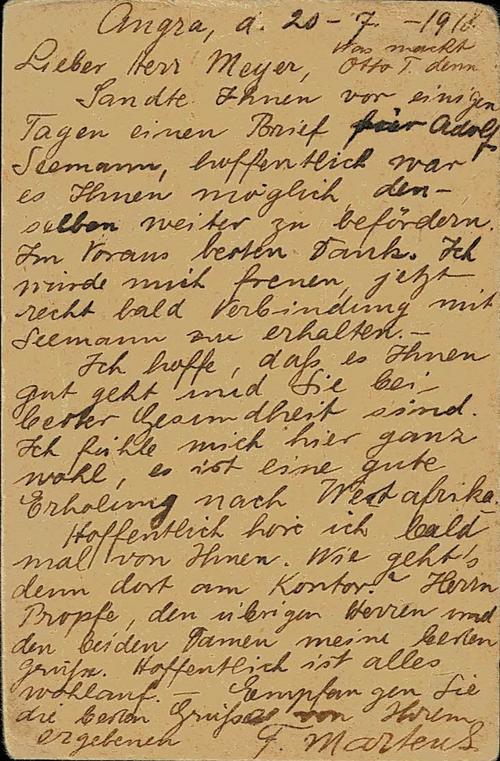 Angra, d. 20-7-1918.
Lieber Herr Meyer, Was macht
Otto T. denn
Sandte Ihnen vor einigen
Tagen einen Brief für Adolf
Seemann, hoffentlich war
es Ihnen möglich, den-
selben weiter zu befördern.
Im Voraus besten Dank. Ich
würde mich freuen, jetzt
recht bald Verbindung mit
Seemann zu erhalten. —
Ich hoffe, daß es Ihnen
gut geht und Sie bei
bester Gesundheit sind.
Ich fühle mich hier ganz
wohl, es ist eine gute
Erholung nach Westafrika.
Hoffentlich höre ich bald
mal von Ihnen. Wie geht's
denn dort am Kontor? Herrn
Propfe, den übrigen Herren und
den beiden Damen meine besten
Grüße. Hoffentlich ist alles
wohlauf. — Empfangen Sie
die besten Grüße von Ihrem
ergebenen F. Martens